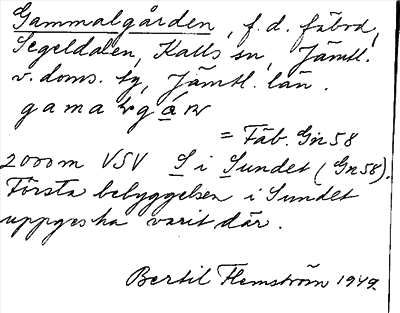 Gammalgården, f.d. fäbod,
Segeldalen, Kalls sn, Jämtl.
v. doms. tg, Jämtl. län.
= Fäb. Gn 58
2000 m VSV S i Sundet (Gn 58).
Första bebyggelsen i Sundet
uppges ha varit där.
Bertil Flemström 1949